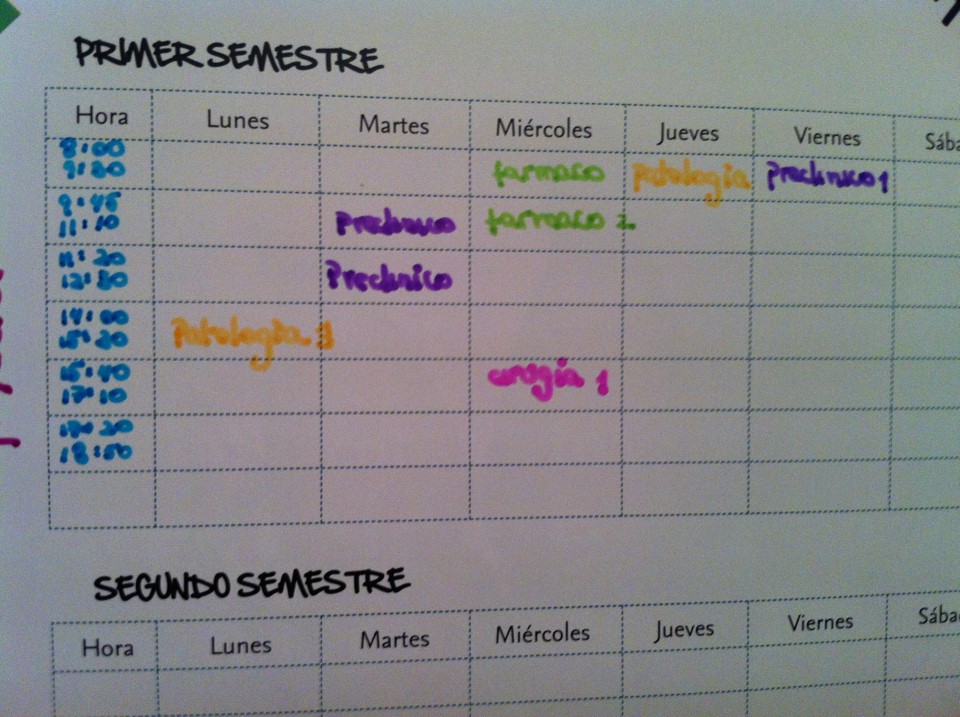 PRIMER SEMESTRE
Hora Lunes Martes Miércoles Jueves Viernes Sába
8:00
9:30 farmaco Patologia Preclinico 1
9:45
11:10 Preclinico farmaco 2
11:20
12:50 Preclinico
14:00
15:30 Patologia 3
15:40
17:10 cirugia 1
17:20
18:50
SEGUNDO SEMESTRE
Hora Lunes Martes Miércoles Jueves Viernes Sába